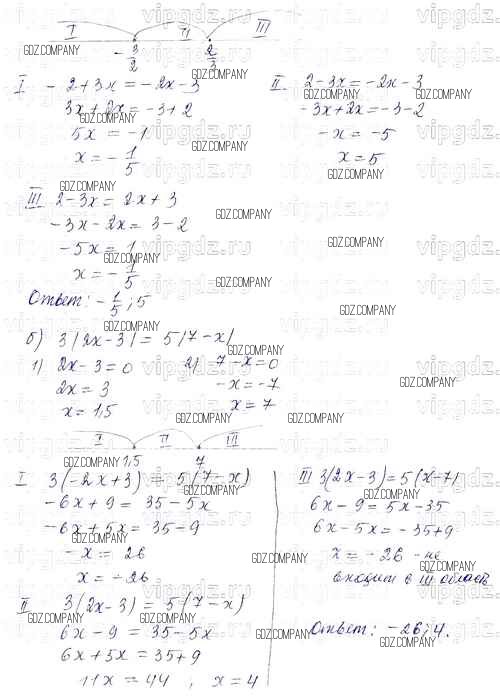 I II III
- 3/2 2/3
I - 2 + 3x = -2x - 3
3x + 2x = -3 + 2
5x = -1
x = - 1/5
II 2 - 3x = -2x - 3
-3x + 2x = -3 - 2
-x = -5
x = 5
III 2 - 3x = 2x + 3
-3x - 2x = 3 - 2
-5x = 1
x = - 1/5
Ответ: - 1/5 ; 5
б) 3|2x - 3| = 5|7 - x|
1) 2x - 3 = 0
2x = 3
x = 1,5
2) 7 - x = 0
-x = -7
x = 7
I II III
1,5 7
I 3(-2x + 3) = 5(7 - x)
-6x + 9 = 35 - 5x
-6x + 5x = 35 - 9
-x = 26
x = -26
II 3(2x - 3) = 5(7 - x)
6x - 9 = 35 - 5x
6x + 5x = 35 + 9
11x = 44 ; x = 4
III 3(2x - 3) = 5(x - 7)
6x - 9 = 5x - 35
6x - 5x = -35 + 9
x = -26 - не
входит в III область
Ответ: -26; 4.
GDZ.COMPANY
vipgdz.ru